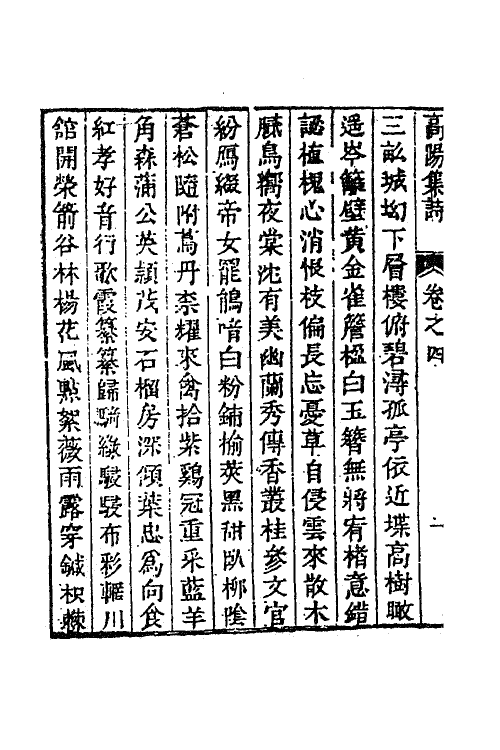 高陽集詩 卷之四 二
三畝城坳下層樓俯碧潯孤亭依近堞高樹瞰
遥岑籬壁黄金雀簷楹白玉簪無將宥楮意錯
認植槐心消恨枝偏長忘憂草自侵雲來散木
鳥嚮夜棠沈有美幽蘭秀傳香叢桂參文官
紛鴈綴帝女罷鶬喑白粉鋪榆莢黑甜臥柳陰
蒼松隨附蔦丹柰耀來禽拾紫鷄冠重采藍羊
角森蒲公英頴茂安石榴房深傾葉忠爲向食
紅孝好音行歌霞纂纂歸騎綠駸駸布彩輞川
舘開榮箭谷林楊花風點絮薇雨露穿鍼枳棘